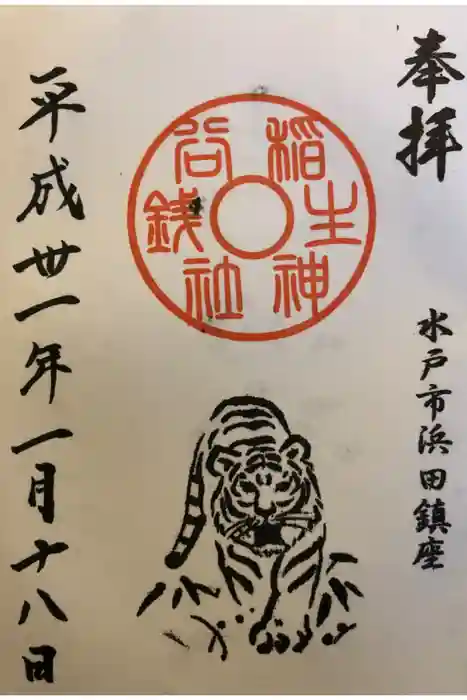 奉拝
水戸市浜田鎮座
銭谷稲生神社
平成卅一年一月十八日